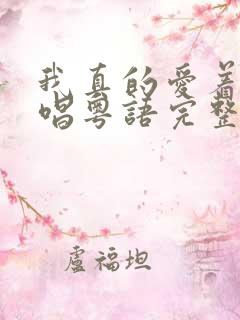 我真的愛着
唱粵語完整
盧福坦